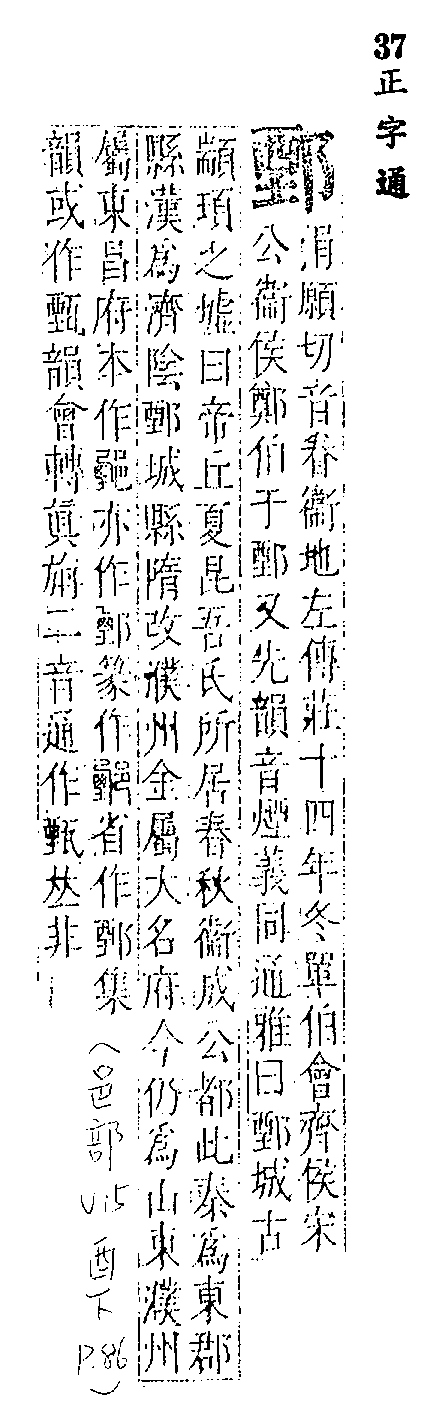 37正字通
鄄
涓願切音眷衞地左傳莊十四年冬單伯會齊侯宋
公衞侯鄭伯于鄄又先韻音煙義同通雅曰鄄城古
顓頊之墟曰帝丘夏昆吾氏所居春秋衞成公都此秦爲東郡
縣漢爲濟陰鄄城縣隋改濮州金屬大名府今仍爲山東濮州
屬東昌府本作亦作鄄篆作省作鄄集
韻或作甄韻會轉眞旃二音通作甄𠀤非
(邑部 U15 酉下 P.86)